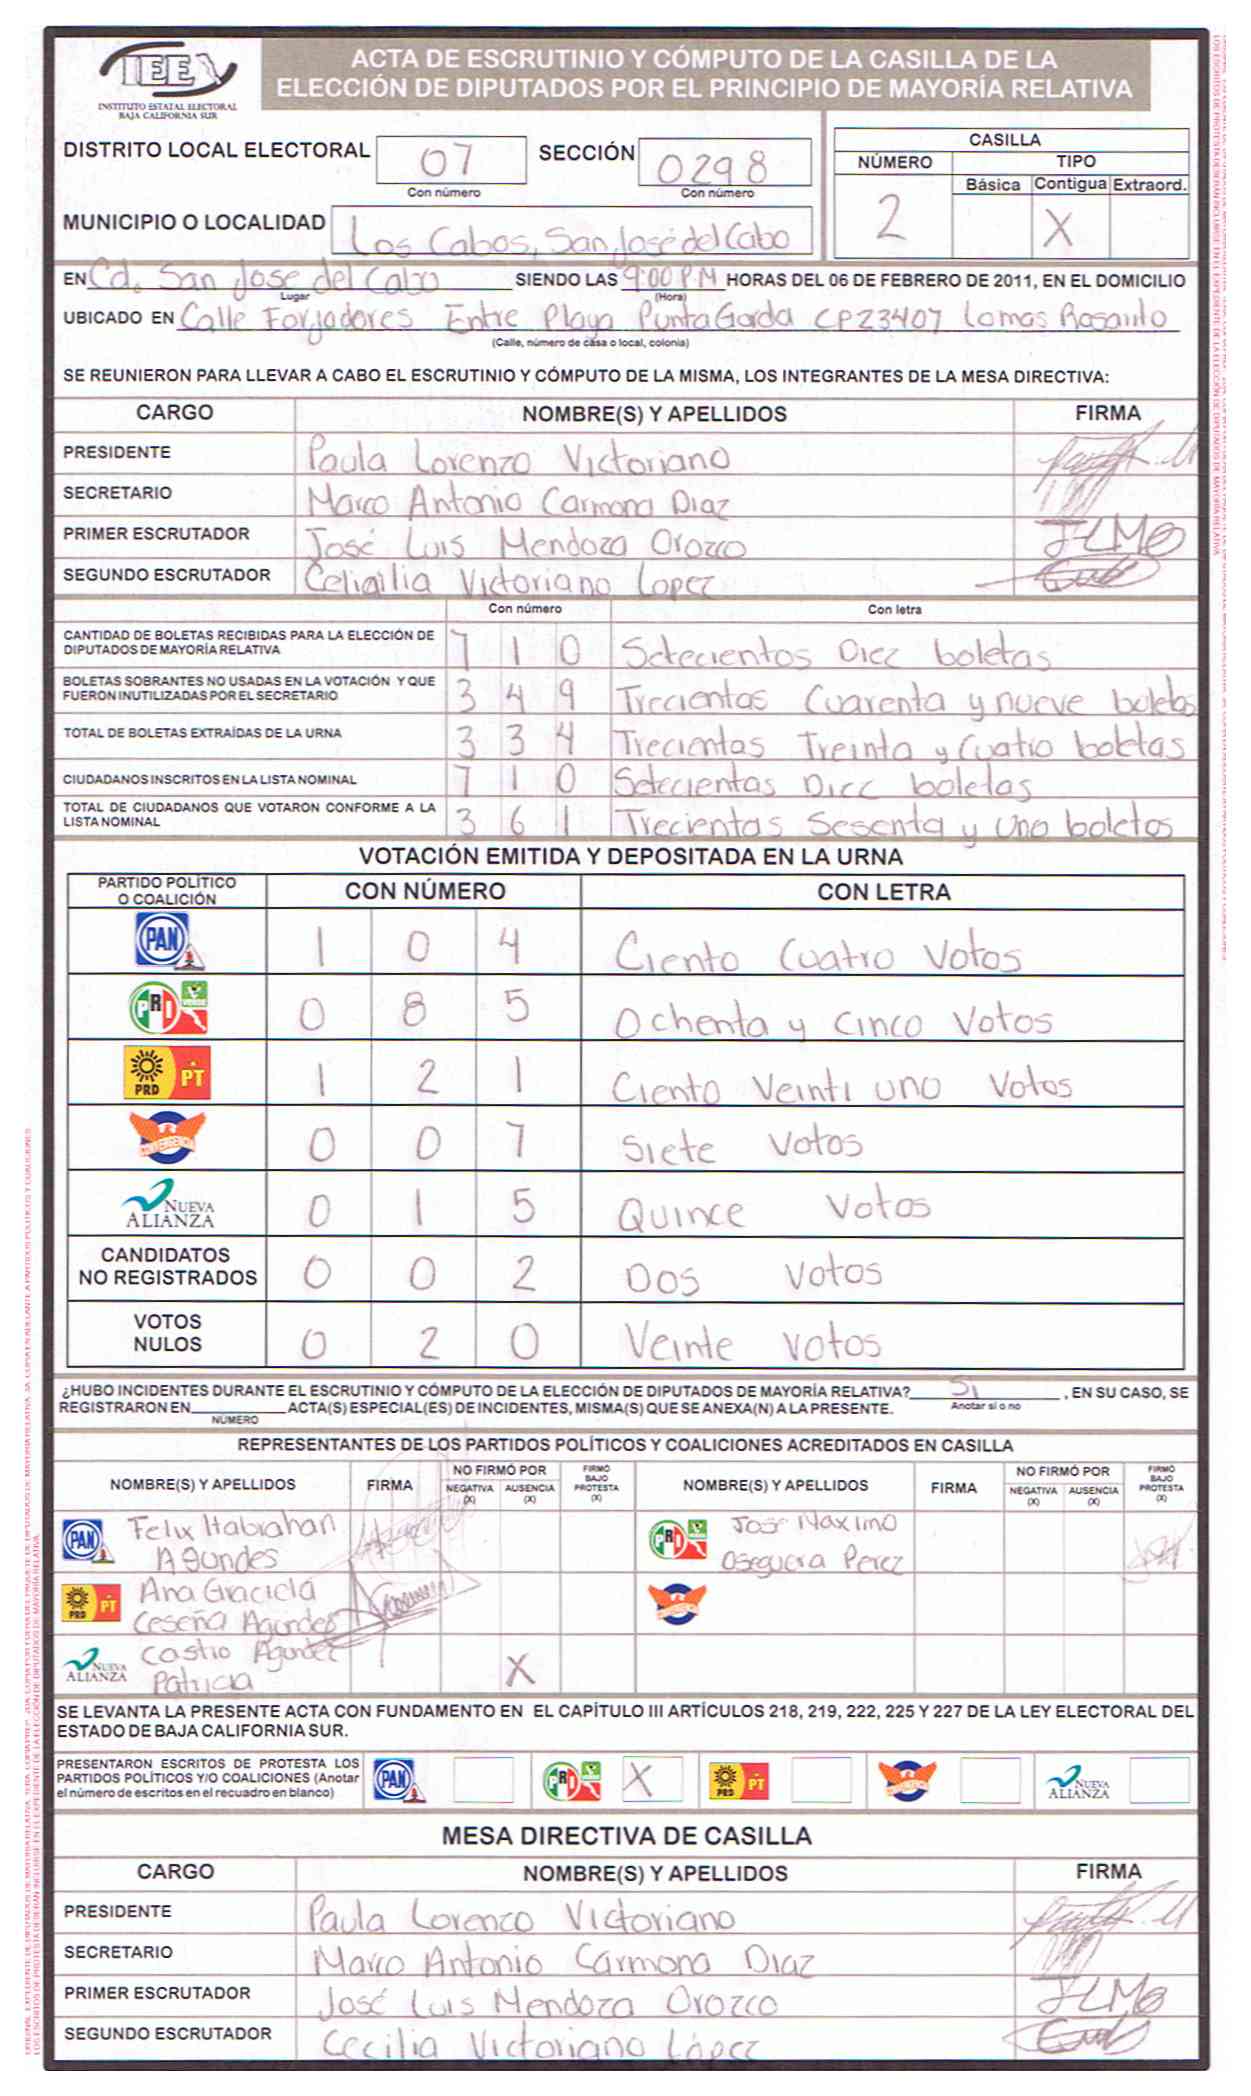 IEEX
INSTITUTO ESTATAL ELECTORAL
BAJA CALIFORNIA SUR
ACTA DE ESCRUTINIO Y CÓMPUTO DE LA CASILLA DE LA
ELECCIÓN DE DIPUTADOS POR EL PRINCIPIO DE MAYORÍA RELATIVA
DISTRITO LOCAL ELECTORAL 07 SECCIÓN 0298
Con número Con número
CASILLA
NÚMERO TIPO
Básica Contigua Extraord.
2 X
MUNICIPIO O LOCALIDAD Los Cabos, San José del Cabo
EN Cd. San Jose del Cabo SIENDO LAS 9:00 P.M HORAS DEL 06 DE FEBRERO DE 2011, EN EL DOMICILIO
Lugar (Hora)
UBICADO EN Calle Forjadores Entre Playa Punta Gorda CP23407 Lomas Rosarito
(Calle, número de casa o local, colonia)
SE REUNIERON PARA LLEVAR A CABO EL ESCRUTINIO Y CÓMPUTO DE LA MISMA, LOS INTEGRANTES DE LA MESA DIRECTIVA:
CARGO NOMBRE(S) Y APELLIDOS FIRMA
PRESIDENTE Paula Lorenzo Victoriano
SECRETARIO Marco Antonio Carmona Diaz
PRIMER ESCRUTADOR José Luis Mendoza Orozco JLMO
SEGUNDO ESCRUTADOR Celigilia Victoriano Lopez
Con número Con letra
CANTIDAD DE BOLETAS RECIBIDAS PARA LA ELECCIÓN DE
DIPUTADOS DE MAYORÍA RELATIVA 7 1 0 Setecientos Diez boletas
BOLETAS SOBRANTES NO USADAS EN LA VOTACIÓN Y QUE
FUERON INUTILIZADAS POR EL SECRETARIO 3 4 9 Trecientas Cuarenta y nueve boletas
TOTAL DE BOLETAS EXTRAÍDAS DE LA URNA 3 3 4 Trecientas Treinta y Cuatro boletas
CIUDADANOS INSCRITOS EN LA LISTA NOMINAL 7 1 0 Setecientas Diez boletas
TOTAL DE CIUDADANOS QUE VOTARON CONFORME A LA
LISTA NOMINAL 3 6 1 Trecientas Sesenta y Uno boletos
VOTACIÓN EMITIDA Y DEPOSITADA EN LA URNA
PARTIDO POLÍTICO
O COALICIÓN CON NÚMERO CON LETRA
PAN 1 0 4 Ciento Cuatro Votos
PRI VERDE 0 8 5 Ochenta y Cinco Votos
PRD PT 1 2 1 Ciento Veinti uno Votos
CONVERGENCIA 0 0 7 Siete Votos
NUEVA ALIANZA 0 1 5 Quince Votos
CANDIDATOS
NO REGISTRADOS 0 0 2 Dos Votos
VOTOS
NULOS 0 2 0 Veinte Votos
¿HUBO INCIDENTES DURANTE EL ESCRUTINIO Y CÓMPUTO DE LA ELECCIÓN DE DIPUTADOS DE MAYORÍA RELATIVA? Si , EN SU CASO, SE
REGISTRARON EN ACTA(S) ESPECIAL(ES) DE INCIDENTES, MISMA(S) QUE SE ANEXA(N) A LA PRESENTE. Anotar sí o no
NÚMERO
REPRESENTANTES DE LOS PARTIDOS POLÍTICOS Y COALICIONES ACREDITADOS EN CASILLA
NOMBRE(S) Y APELLIDOS FIRMA NO FIRMÓ POR NEGATIVA (X) AUSENCIA (X) FIRMÓ BAJO PROTESTA (X) NOMBRE(S) Y APELLIDOS FIRMA NO FIRMÓ POR NEGATIVA (X) AUSENCIA (X) FIRMÓ BAJO PROTESTA (X)
PAN Felix Habrahan PRI José Maximo
Agundes Oseguera Perez
PRD PT Ana Graciela
Ceseña Agundez
NUEVA ALIANZA Castro Agundez
Patricia X
SE LEVANTA LA PRESENTE ACTA CON FUNDAMENTO EN EL CAPÍTULO III ARTÍCULOS 218, 219, 222, 225 Y 227 DE LA LEY ELECTORAL DEL
ESTADO DE BAJA CALIFORNIA SUR.
PRESENTARON ESCRITOS DE PROTESTA LOS
PARTIDOS POLÍTICOS Y/O COALICIONES (Anotar
el número de escritos en el recuadro en blanco) PAN PRI X PRD PT NUEVA ALIANZA
MESA DIRECTIVA DE CASILLA
CARGO NOMBRE(S) Y APELLIDOS FIRMA
PRESIDENTE Paula Lorenzo Victoriano
SECRETARIO Marco Antonio Carmona Diaz
PRIMER ESCRUTADOR José Luis Mendoza Orozco JLMO
SEGUNDO ESCRUTADOR Cecilia Victoriano López